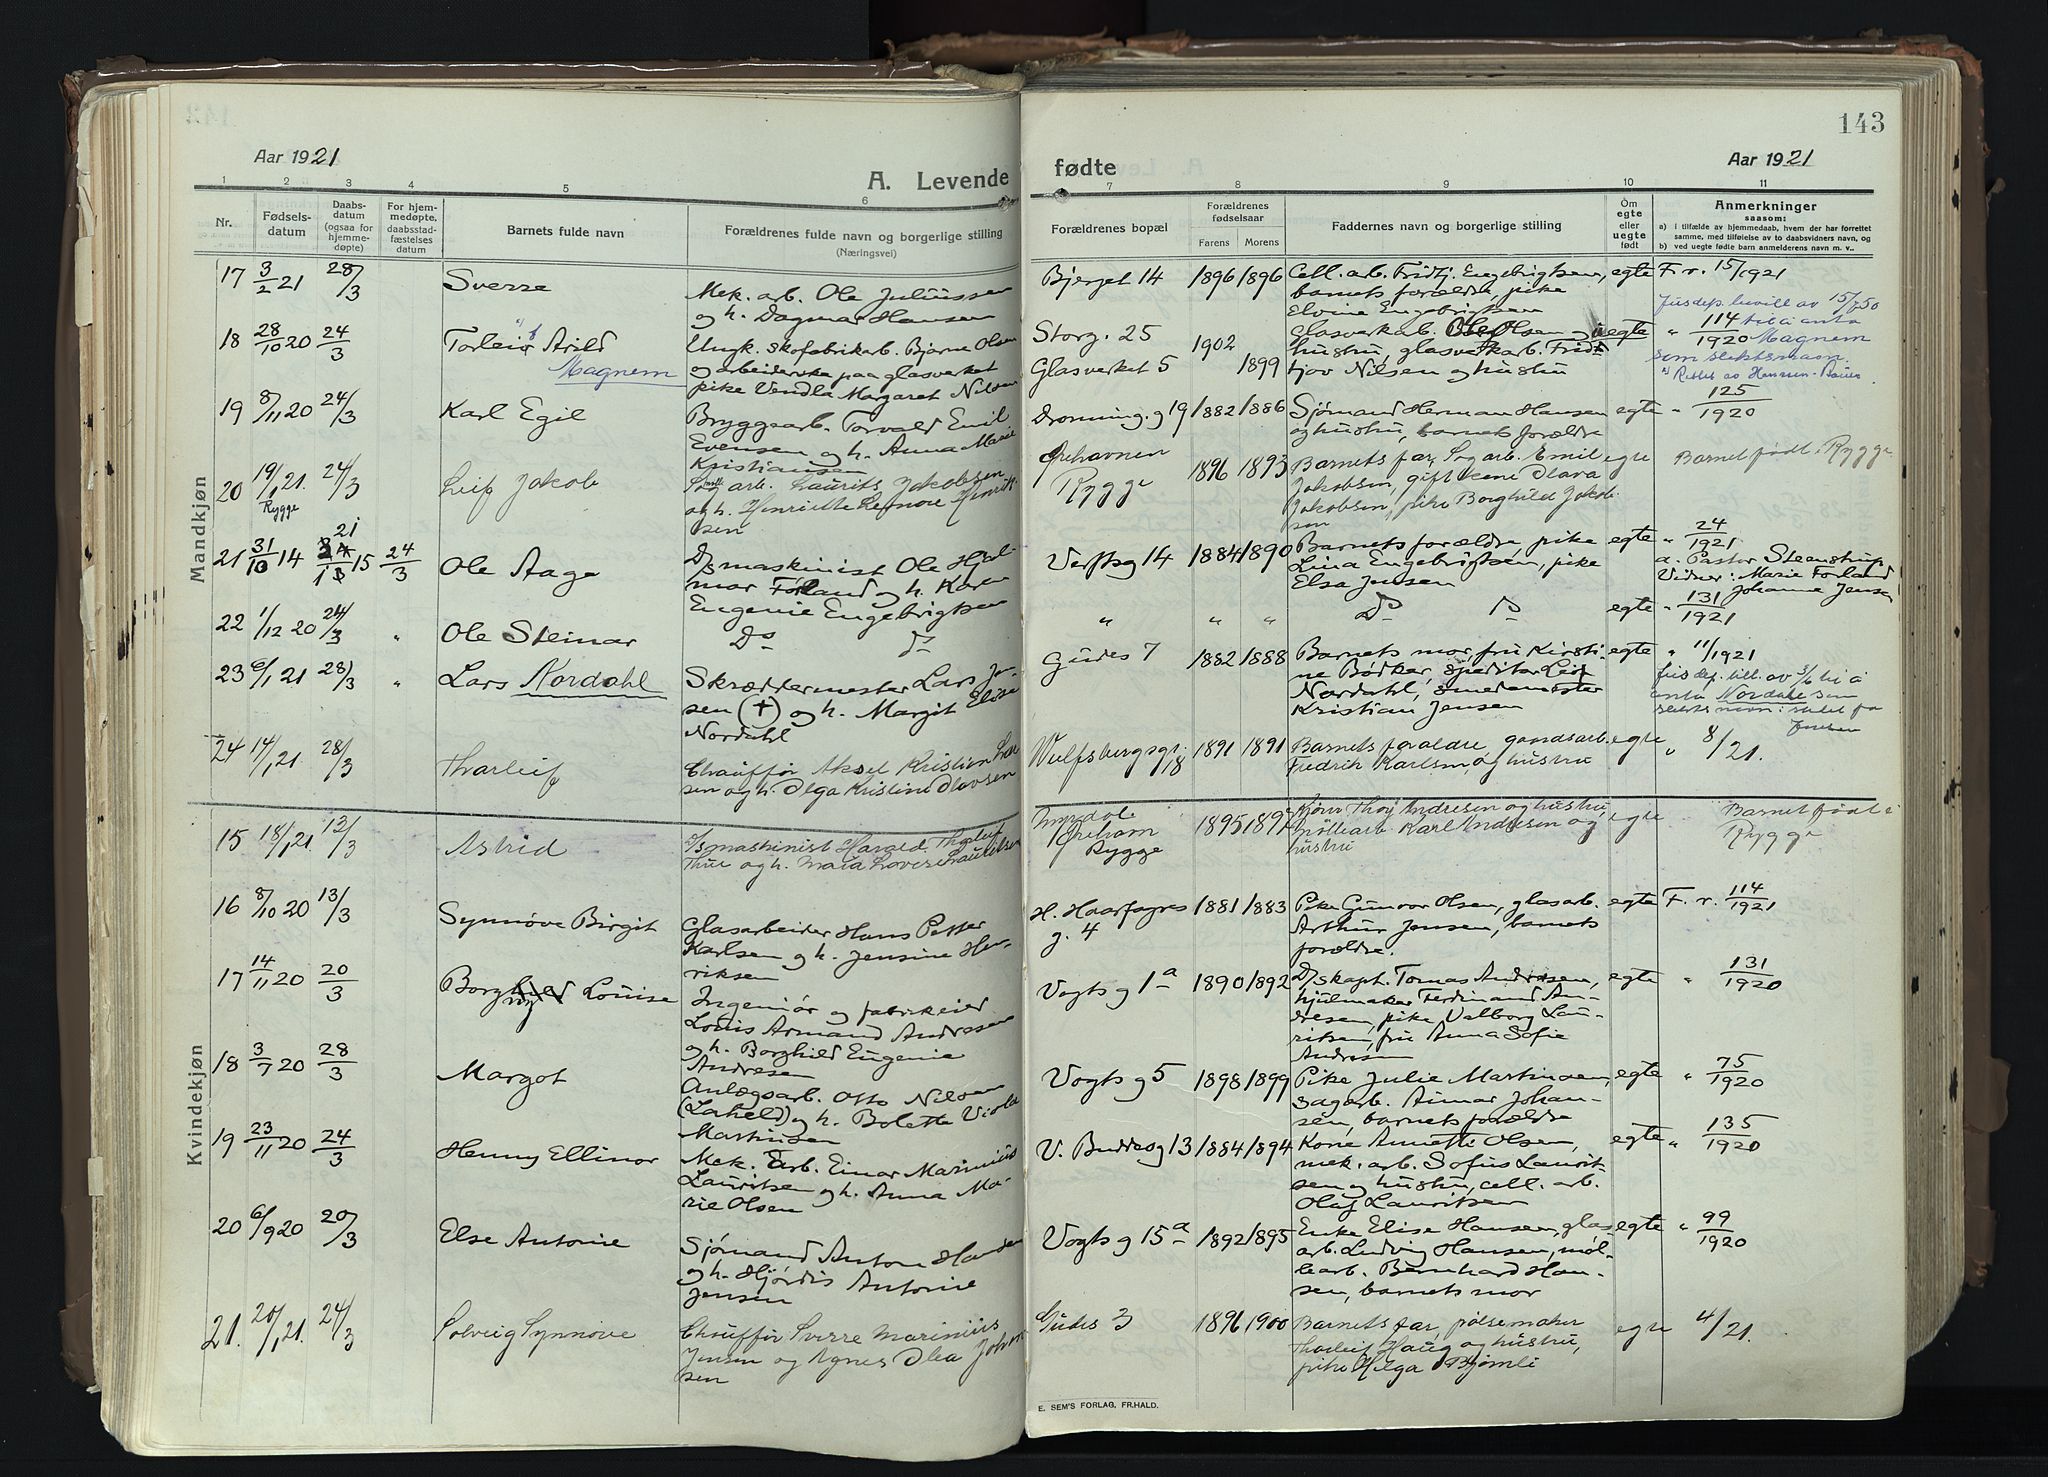 143
Aar 1921
A. Levende fødte
Aar 1921
1 2 3 4 5 6 7 8 9 10 11
Nr.
Fødsels-
datum
Daabs-
datum
(ogsaa for
hjemme-
døpte)
For hjem-
medøpte,
daabsstad-
fæstelses
datum
Barnets fulde navn
Forældrenes fulde navn og borgerlige stilling
(Næringsvei)
Forældrenes bopæl
Forældrenes
fødselsaar
Farens Morens
Faddernes navn og borgerlige stilling
Om
egte
eller
uegte
født
Anmerkninger
saasom:
a) i tilfælde av hjemmedaab, hvem der har forrettet
samme, med tilføielse av to daabsvidners navn, og
b) ved uegte fødte barn anmelderens navn m. v..
Mandkjøn
17 3/2 21 28/3 Sverre
Mek. arb. Ole Juliussen
og h. Dagmar Hansen
Bjerget 14 1896 1896
Cell. arb. Fridtj. Engebrigtsen,
barnets forældre, pike
Elvine Engebrigtsen
egte F. r. 15/1921
18 28/10 20 24/3 Torleif Arild
Magnem
Ungk. skofabrikarb. Bjarne Olsen
og arbeiderske paa glasverket
pike Vendla Margaret Nilsen
Storg. 25
Glasverket 5
1902 1899
Glasverkarb. Olsen og
hustru, glasverkarb. Frid-
tjov Nilsen og hustru
uegte
Jusdep. bevill av 15/7 50
til å anta
Magnem
som slektsnavn.
" 114/1920
19 8/11 20 24/3 Karl Egil
Bryggearb. Torvald Emil
Evensen og h. Anna Marie
Kristiansen
Dronning. g 19 1882 1886
Sjømand Herman Hansen
og hustru, barnets forældre
egte " 125/1920
20 19/1 21. 24/3 Leif Jakob
Rygge
arb. Laurits Jakobsen
og h. Henriette Lenore Henrik-
sen
Ørehavnen
Rygge
1896 1893
Barnets far, arb. Emil
Jakobsen, gift kone Olava
Jakobsen, pike Borghild Jakob-
sen
egte Barnet født i Rygge
21 31/10 14 21 15 24/3 Ole Aage
D/s maskinist Ole Hjal-
mar Forland og h. Karen
Eugenie Engebrigtsen
Verftsg 14 1884 1890
Barnets forældre, pike
Lina Engebrigtsen, pike
Elsa Jensen
egte " 24/1921
a. Pastor Steenstrup
Vidner: Marie Forland
Johanne Jensen
22 1/12 20 24/3 " Ole Steinar
Do Do
" " " Do Do egte " 131/1921
23 6/1 21 28/3 " Lars Nordahl
Skræddermester Lars Jen-
sen (+) og h. Margit Elvine
Nordahl
Gudes 7 1882 1888
Barnets mor, fru Kirsti-
ne Bødker, speditør Leif
Nordahl, smedemester
Kristian Jensen
egte " 11/1921
jusdep. till. av 3/6 til å
anta Nordahl som
slektsnavn i stedet for
Jensen
24 14/1 21. 28/3 Tharleif
Chauffør Aksel Kristian
sen og h. Olga Kristine Olavsen
Wulfsbergsg. 18 1891 1891
Barnets forældre, gaardsarb.
Fredrik Karlsen, og hustru
egte " 8/21.
Kvindekjøn
15 18/1 21. 13/3 Astrid
D/s maskinist Harald Thorleif
Thue og h. Maia Lovise Lauritsen
Ørehavn
Rygge
1895
Thor Andresen og hustru,
møllearb. Karl Andresen og
hustru
egte Barnet født i
Rygge
16 8/10 20 13/3 Synnøve Birgit
Glasarbeider Hans Petter
Karlsen og h. Jensine Hen-
riksen
H. Haarfagres
g. 4
1881 1883
Pike Gunvor Olsen, glasarb.
Arthur Jensen, barnets
forældre.
egte F. r. 114/1921
17 14/11 20 20/3 Borghild Louise
ny
Ingeniør og fabrikeier
Louis Armand Andresen
og h. Borghild Eugenie
Andresen
Vogts g 1a 1890 1892
D/skapt. Tomas Andresen,
hjulmaker Ferdinand An-
dresen, pike Valborg Lau-
ritsen, fru Anna Sofie
Andresen
egte " 131/1920
18 3/7 20 28/3 Margot
Anlægsarb. Otto Nilsen
(Lakeld) og h. Bolette Viola
Martinsen
Vogts g 5 1898 1899
Pike Julie Martinsen,
sagarb. Einar Johan-
sen, barnets forældre
egte " 75/1920
19 23/11 20 24/3 Henny Ellinor
Mek. arb. Einar Marinius
Lauritsen og h. Anna Ma-
rie Olsen
V. Buddesg 13 1884 1894
Kone Annette Olsen,
mek. arb. Sofus Laurit-
sen og hustru, cell. arb.
Olaf Lauritsen
egte " 135/1920
20 6/9 20 20/3 Else Antonie
Sjømand Anton Hansen
og h. Hjørdis Antonie
Jensen
Vogts g 15a 1892 1895
Enke Elise Hansen, glas-
arb. Ludvig Hansen, møl-
learb. Bernhard Han-
sen, barnets mor
egte " 99/1920
21. 20/1 21. 24/3 Solveig Synnøve
Chauffør Sverre Marinius
Jensen og Agnes Olea Johan-
sen
Gudes 3 1896 1900
Barnets far, pølsemaker
Thorleif Haug og hustru,
pike Helga Bjømli
egte 4/21.
E. SEM'S FORLAG, FR.HALD.